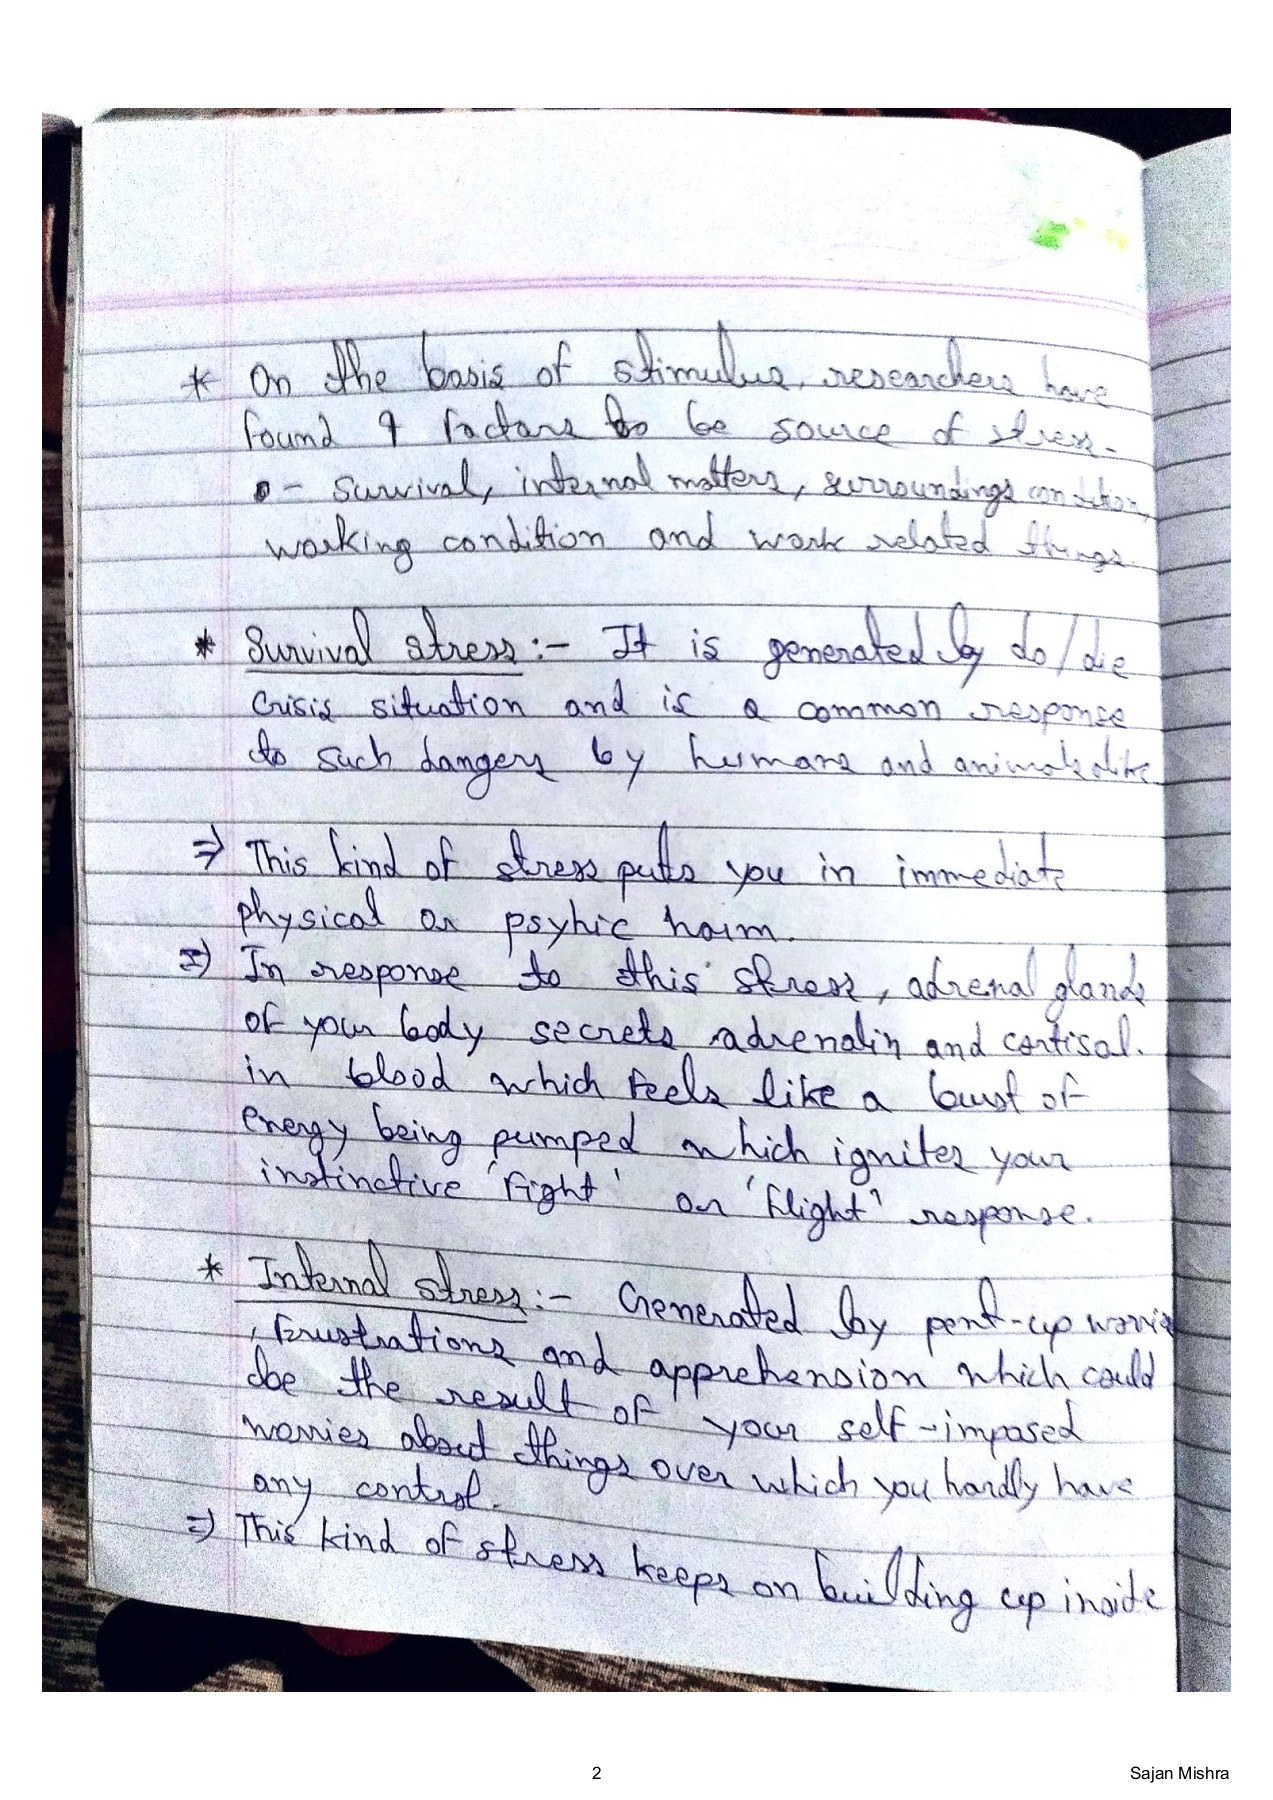 * On the basis of stimulus, researchers have
found 4 factors to be source of stress.
- Survival, internal matters, surroundings condition,
working condition and work related things.
* Survival stress :- It is generated by do/die
crisis situation and is a common response
to such dangers by humans and animals alike
⇒ This kind of stress puts you in immediate
physical or psyhic harm.
⇒ In response to this stress, adrenal glands
of your body secrets adrenalin and cortisol.
in blood which feels like a burst of
energy being pumped which ignites your
instinctive 'fight' or 'flight' response.
* Internal stress :- Generated by pent-up worries
, frustrations and apprehension which could
be the result of your self-imposed
worries about things over which you hardly have
any control.
⇒ This kind of stress keeps on building up inside
2
Sajan Mishra